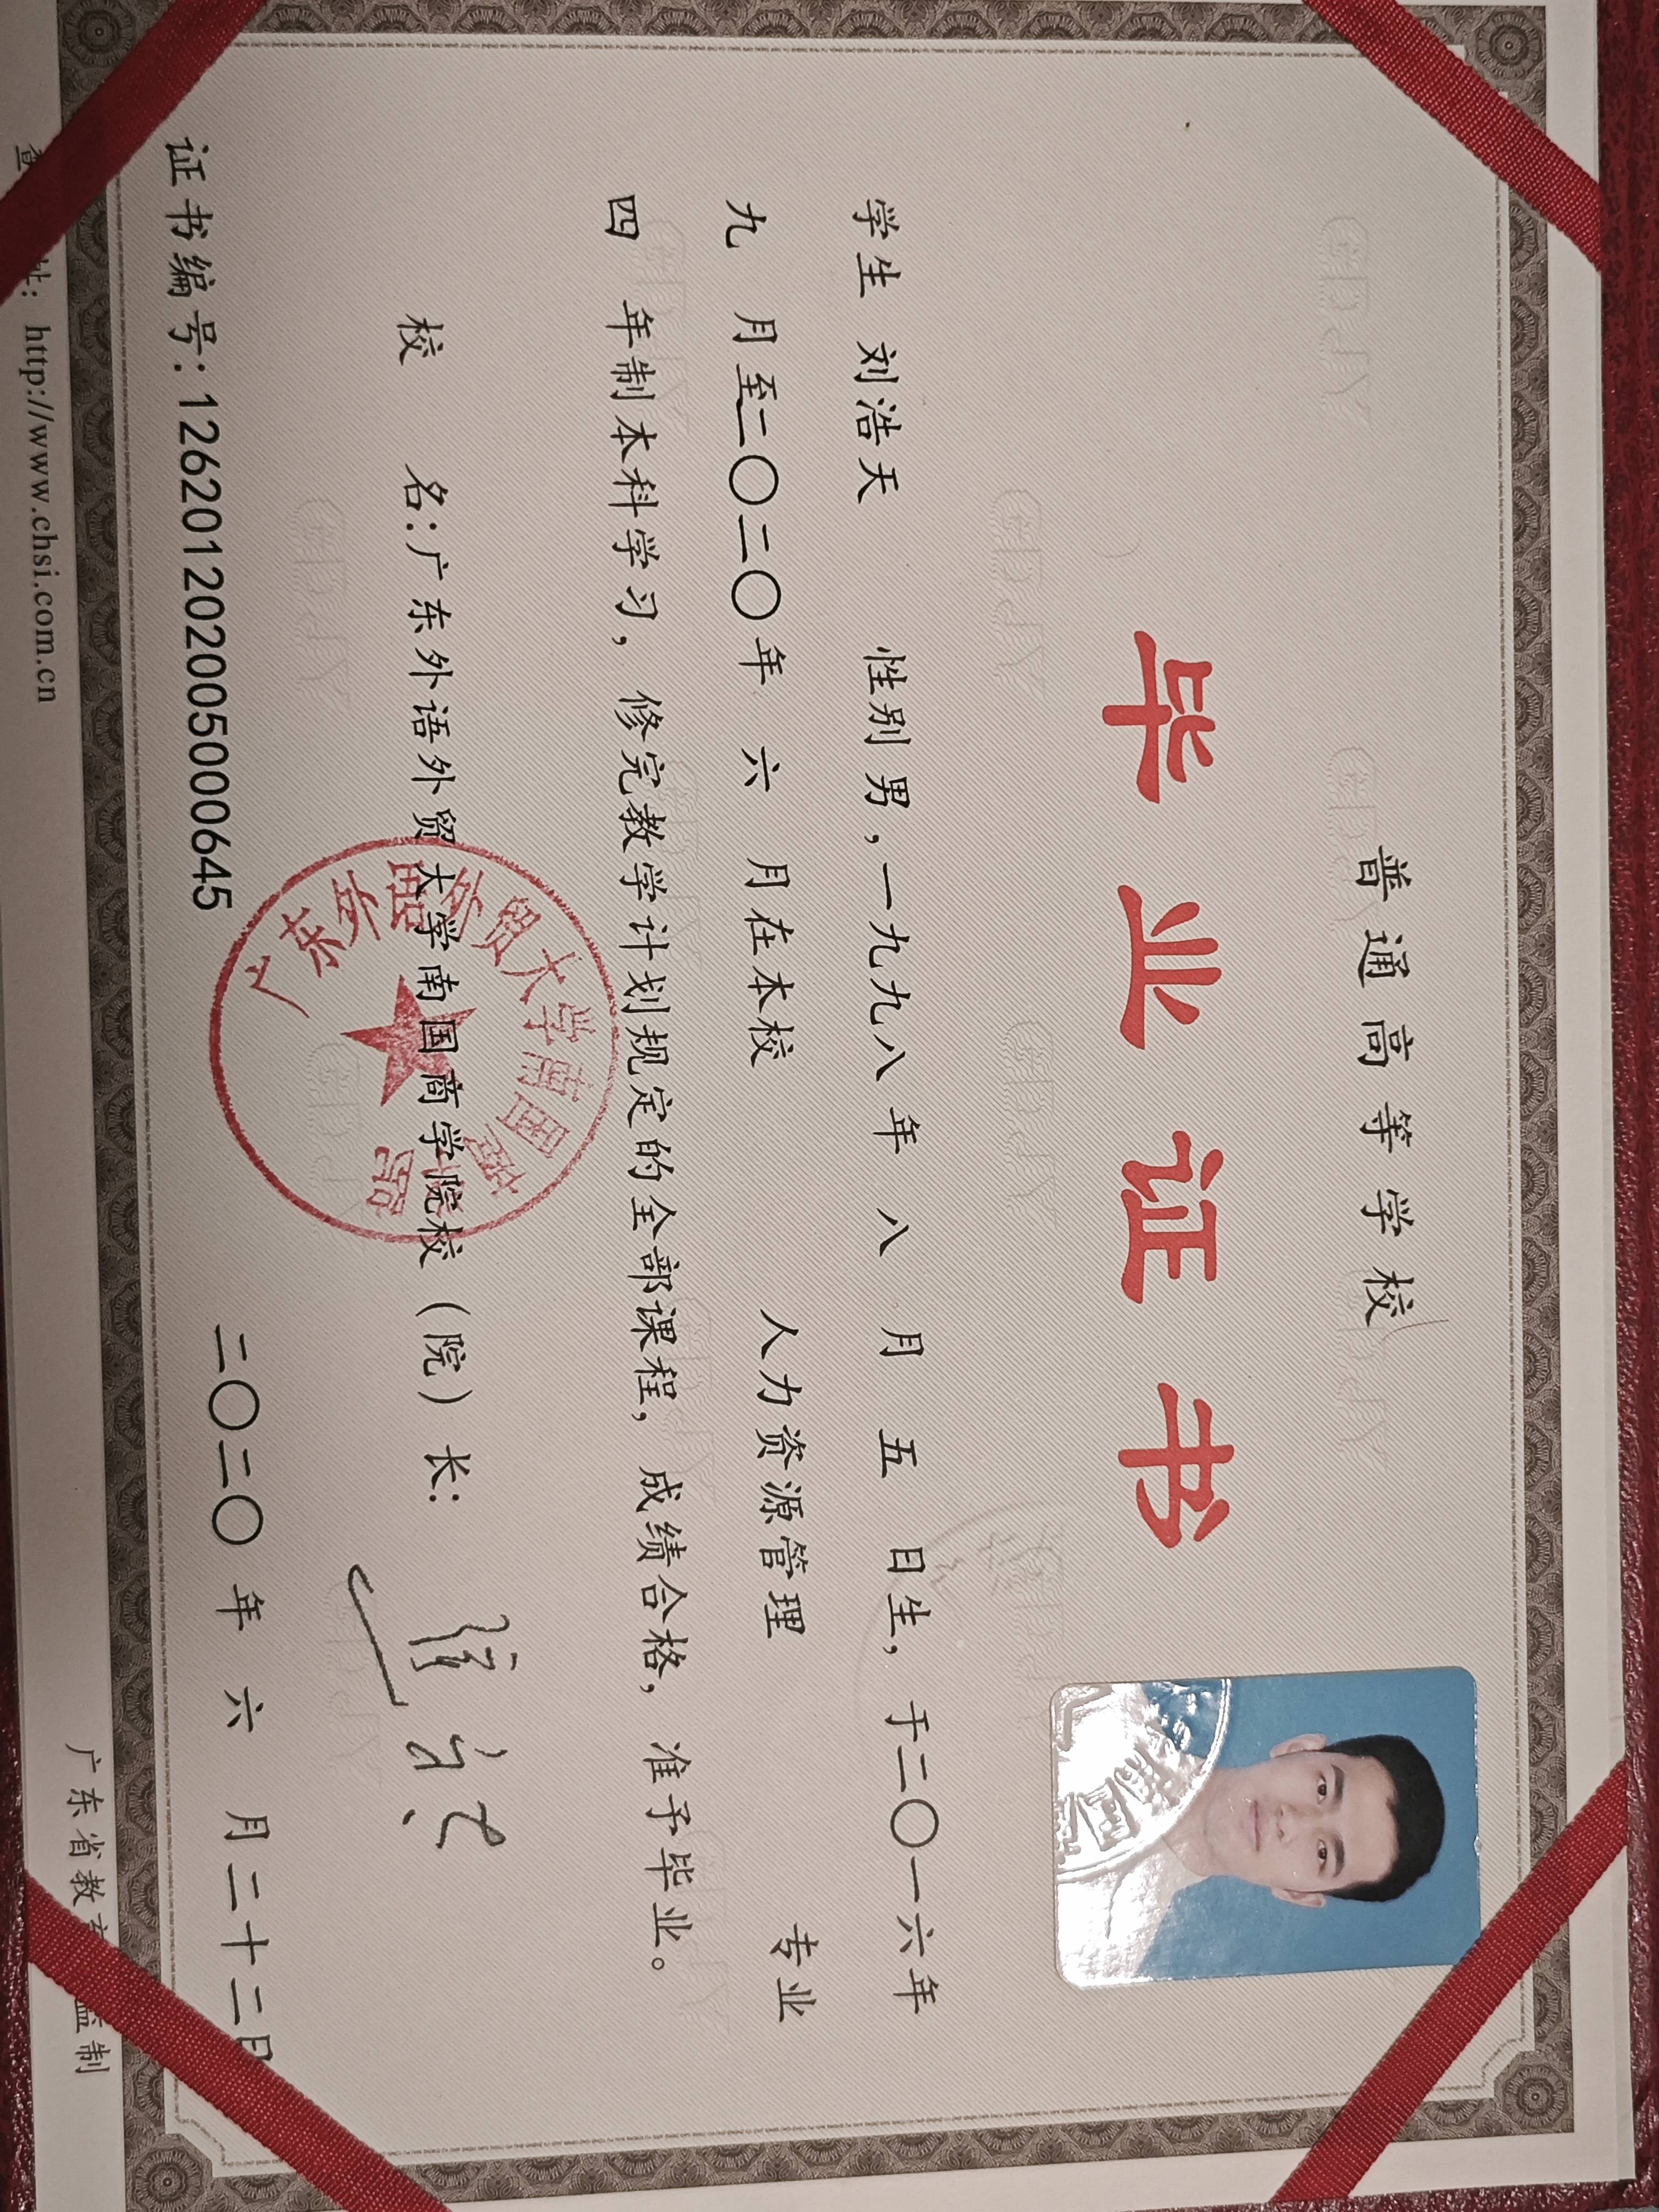 普通高等学校
毕业证书
学生 刘浩天 性别男，一九九八年 八 月 五 日生，于二〇一六年
九 月至二〇二〇年 六 月在本校 人力资源管理 专业
四 年制本科学习，修完教学计划规定的全部课程，成绩合格，准予毕业。
校 名：广东外语外贸大学南国商学院校（院）长：
广东外语外贸大学南国商学院
证书编号：126201202005000645
二〇二〇 年 六 月二十二日
广东省教育 监制
查 址：http://www.chsi.com.cn